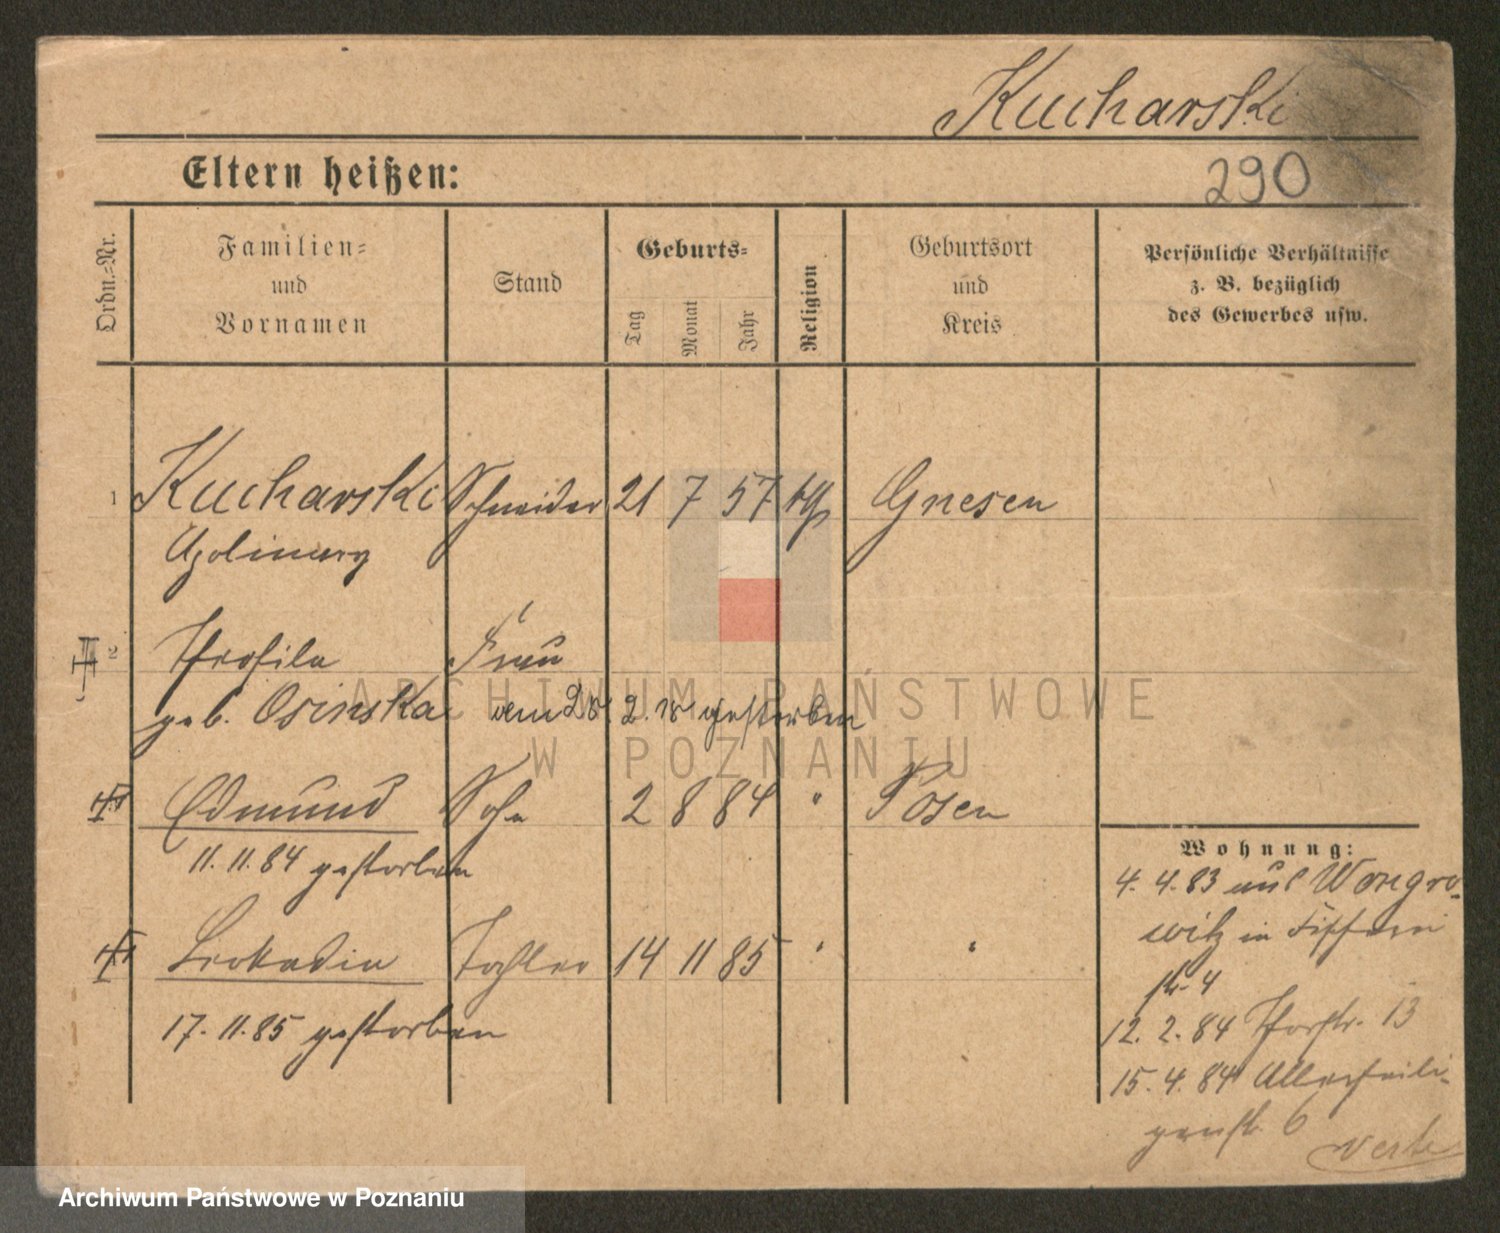 Kucharski
Eltern heißen:
290
Ordn.-Nr.
Familien-
und
Vornamen
Stand
Geburts-
Tag
Monat
Jahr
Religion
Geburtsort
und
Kreis
Persönliche Verhältnisse
z. B. bezüglich
des Gewerbes usw.
1 Kucharski Schneider 21 7 57 kth Gnesen
Apolinary
2 Frau
geb. Osinska 2. 18 gestorben
Edmund Sohn 2 8 84 " Posen
11.11.84 gestorben
Leokadia Tochter 14 11 85 " "
17.11.85 gestorben
Wohnung:
4. 4. 83 aus Wongro-
witz in Fischerei
str. 4
12. 2. 84 Thorstr. 13
15. 4. 84 Allerheili-
genstr. 6
verte
ARCHIWUM PAŃSTWOWE
W POZNANIU
Archiwum Państwowe w Poznaniu